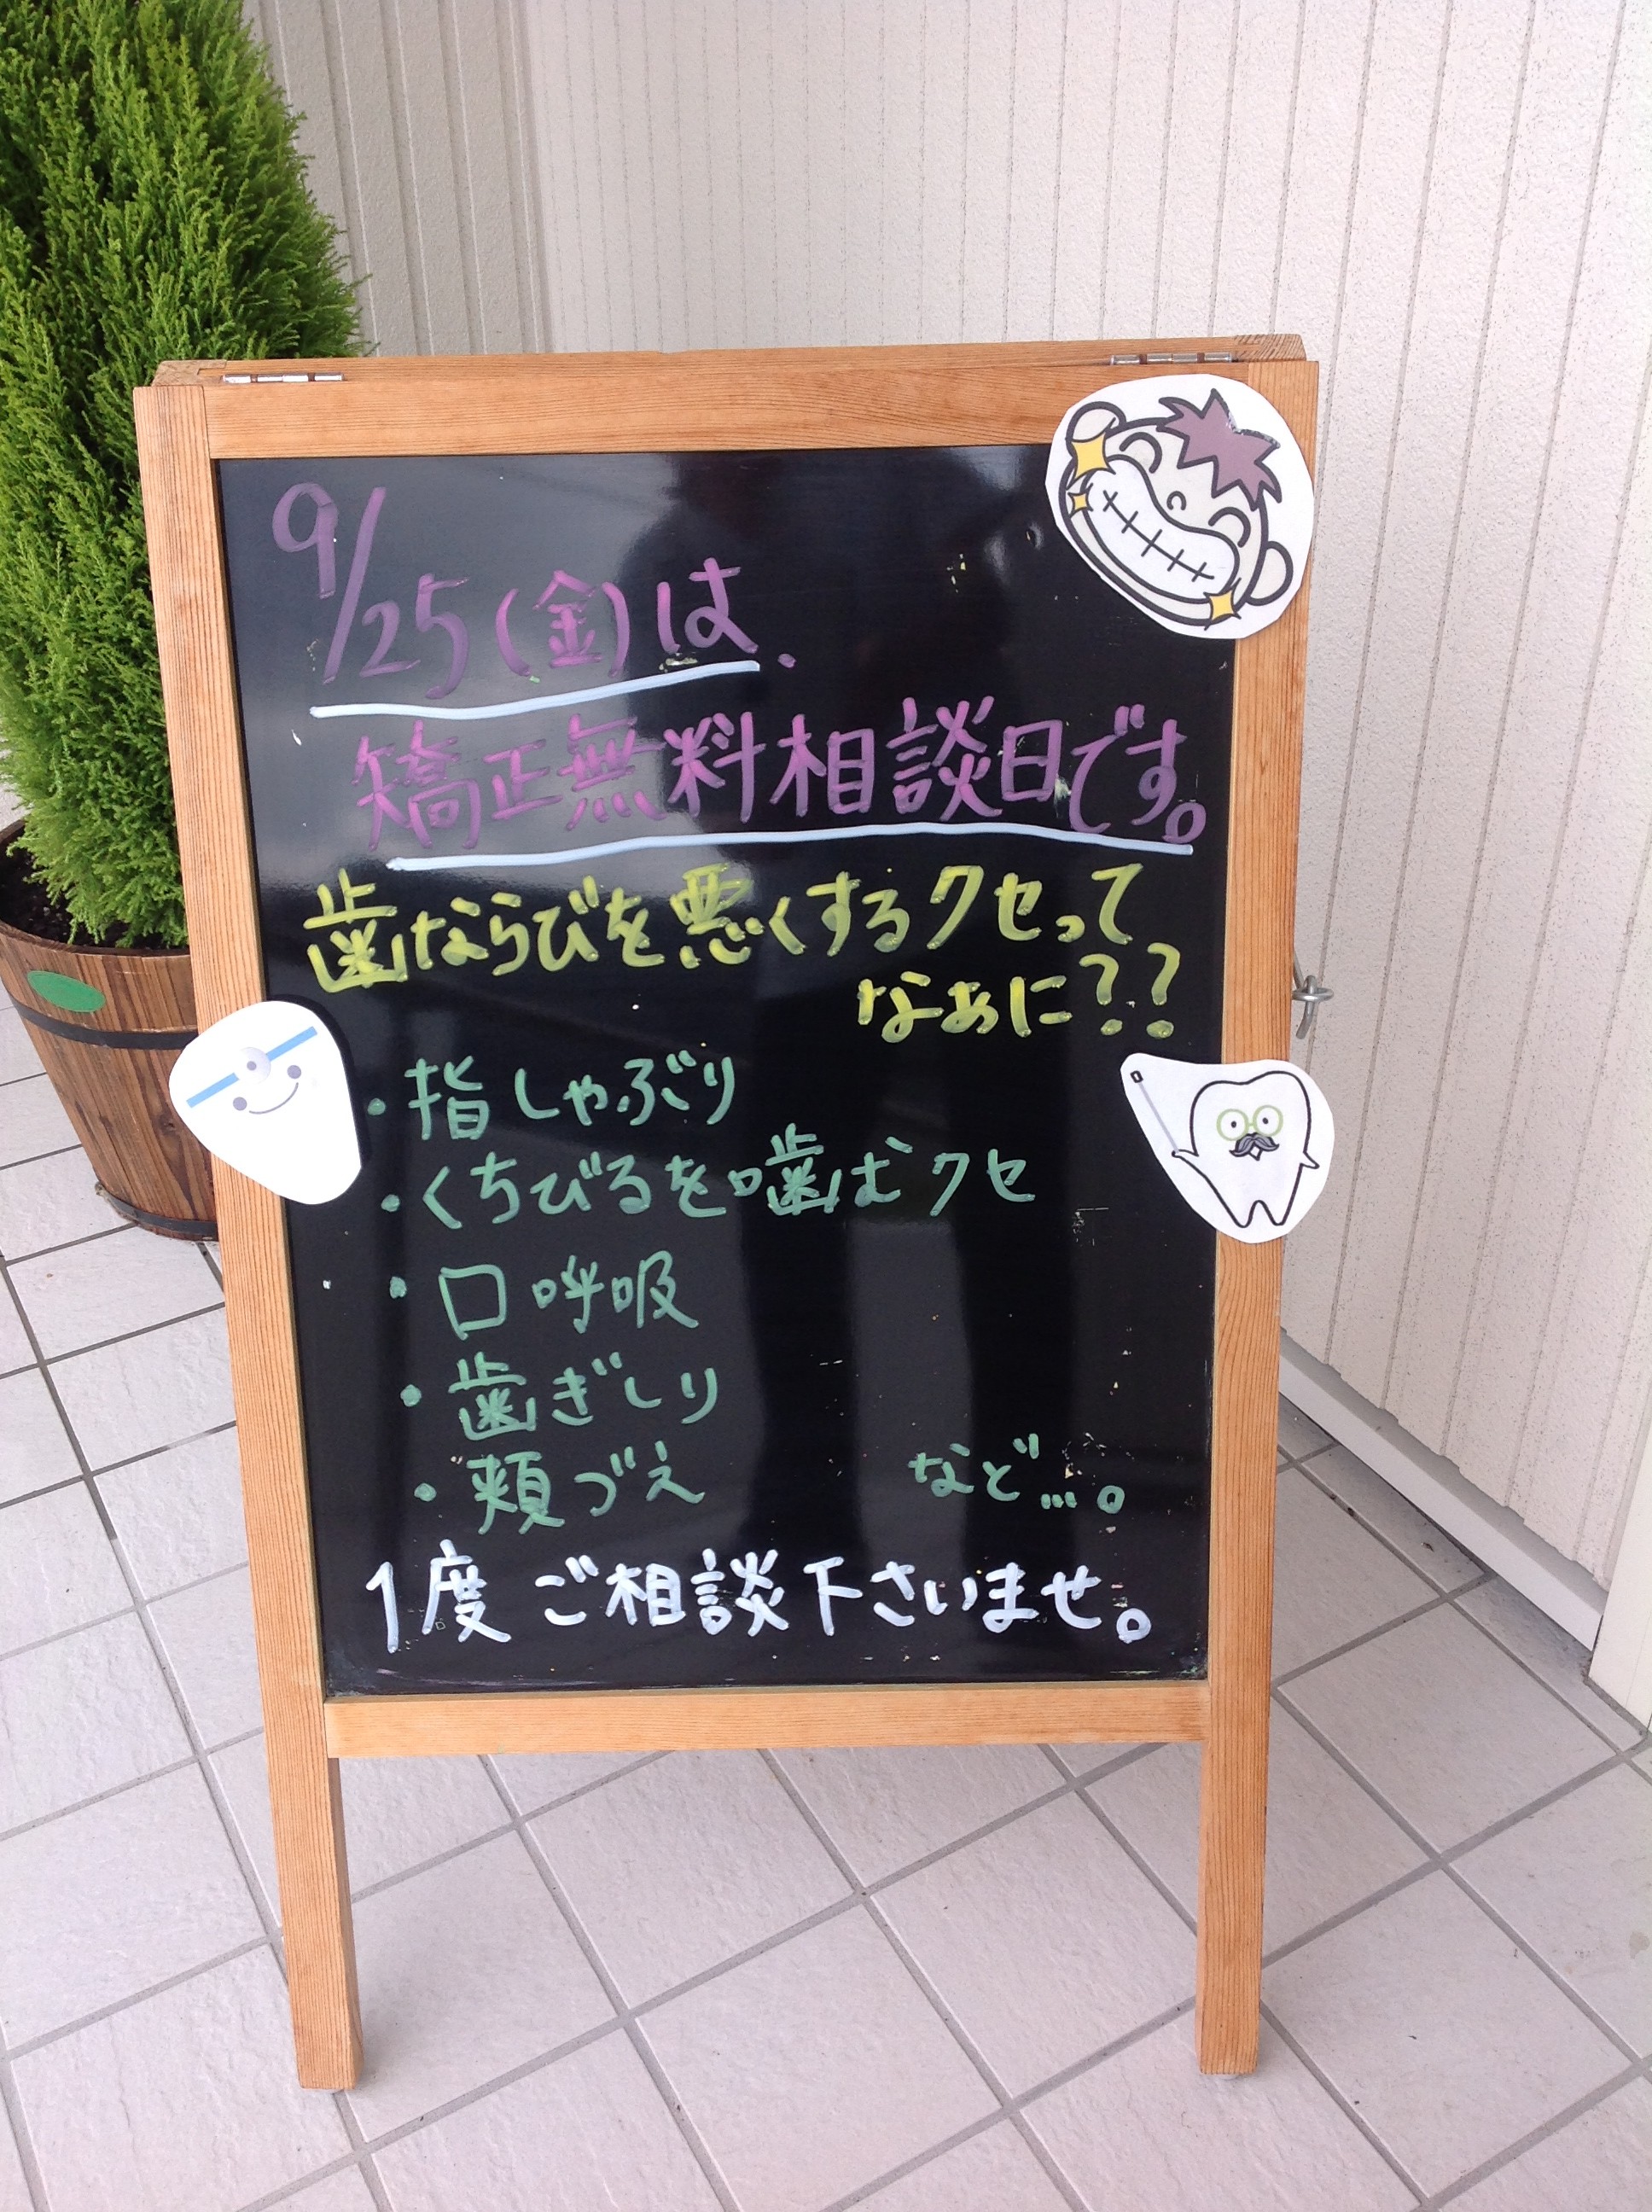 9/25(金)は、
矯正無料相談日です。
歯ならびを悪くするクセって
なぁに??
・指しゃぶり
・くちびるを噛むクセ
・口呼吸
・歯ぎしり
・頬づえ　など…。
1度ご相談下さいませ。